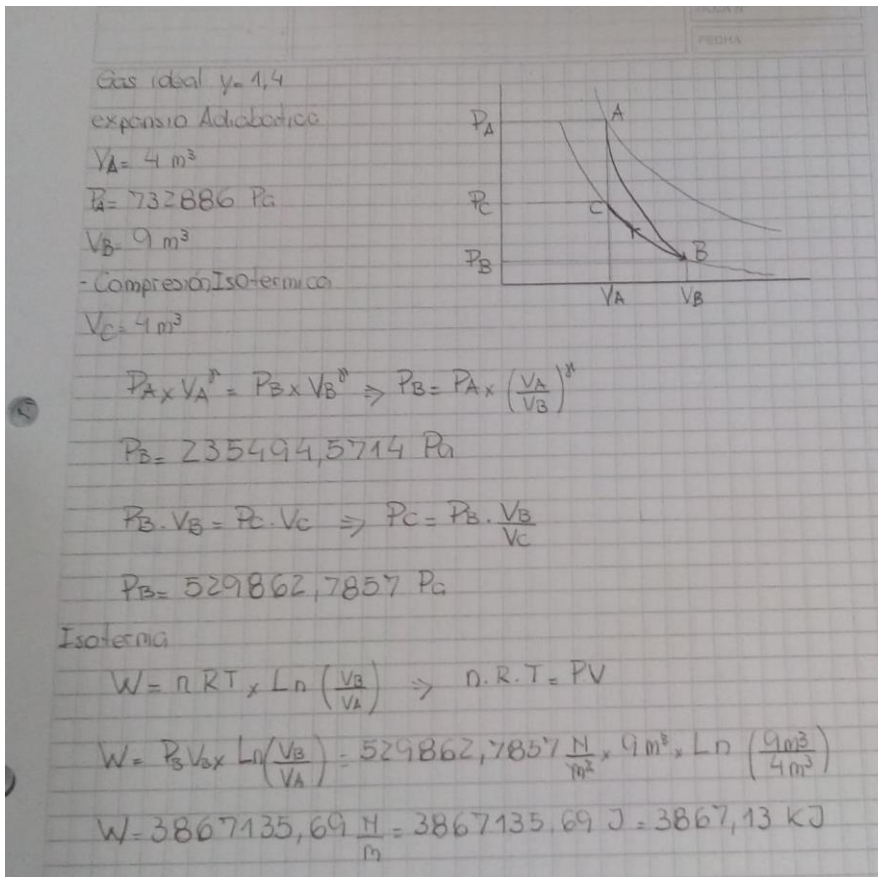 FECHA
Gas ideal γ= 1,4
expansio Adiabatica
VA= 4 m³
PA= 732886 Pa
VB= 9 m³
- Compresión Isotermica
VC= 4 m³
PA
PC
PB
A
C
B
VA VB
PA x VA^γ = PB x VB^γ ⇒ PB = PA x (VA/VB)^γ
PB= 235494,5714 Pa
PB . VB = PC . VC ⇒ PC = PB . VB/VC
PB= 529862,7857 Pa
Isoterma
W = n RT x Ln (VB/VA) ⇒ n.R.T = PV
W = PB VB x Ln(VB/VA) = 529862,7857 N/m² x 9m³ x Ln (9m³/4m³)
W = 3867135,69 N/m = 3867135,69 J = 3867,13 KJ